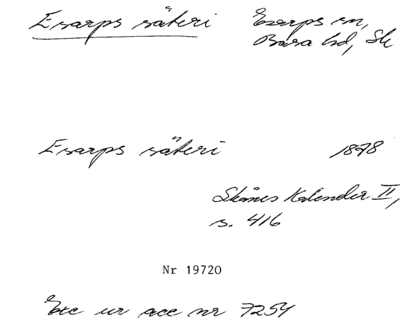 Esarps säteri Esarps sn,
Bara hd, Sk
Esarps säteri 1878
Skånes Kalender II,
s. 416
Nr 19720
Exc ur acc nr 7254